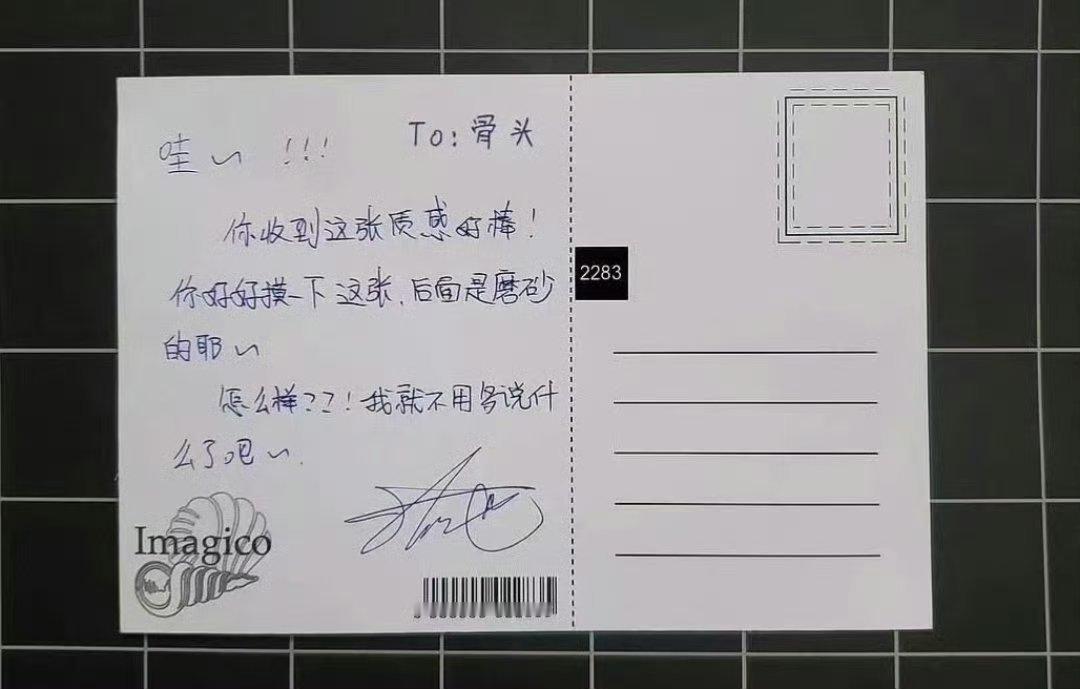 To: 骨头
哇~ !!!
你收到这张质感好棒!
你好好摸一下这张,后面是磨砂
的耶~
怎么样??!我就不用多说什
么了吧~.
Imagico
2283